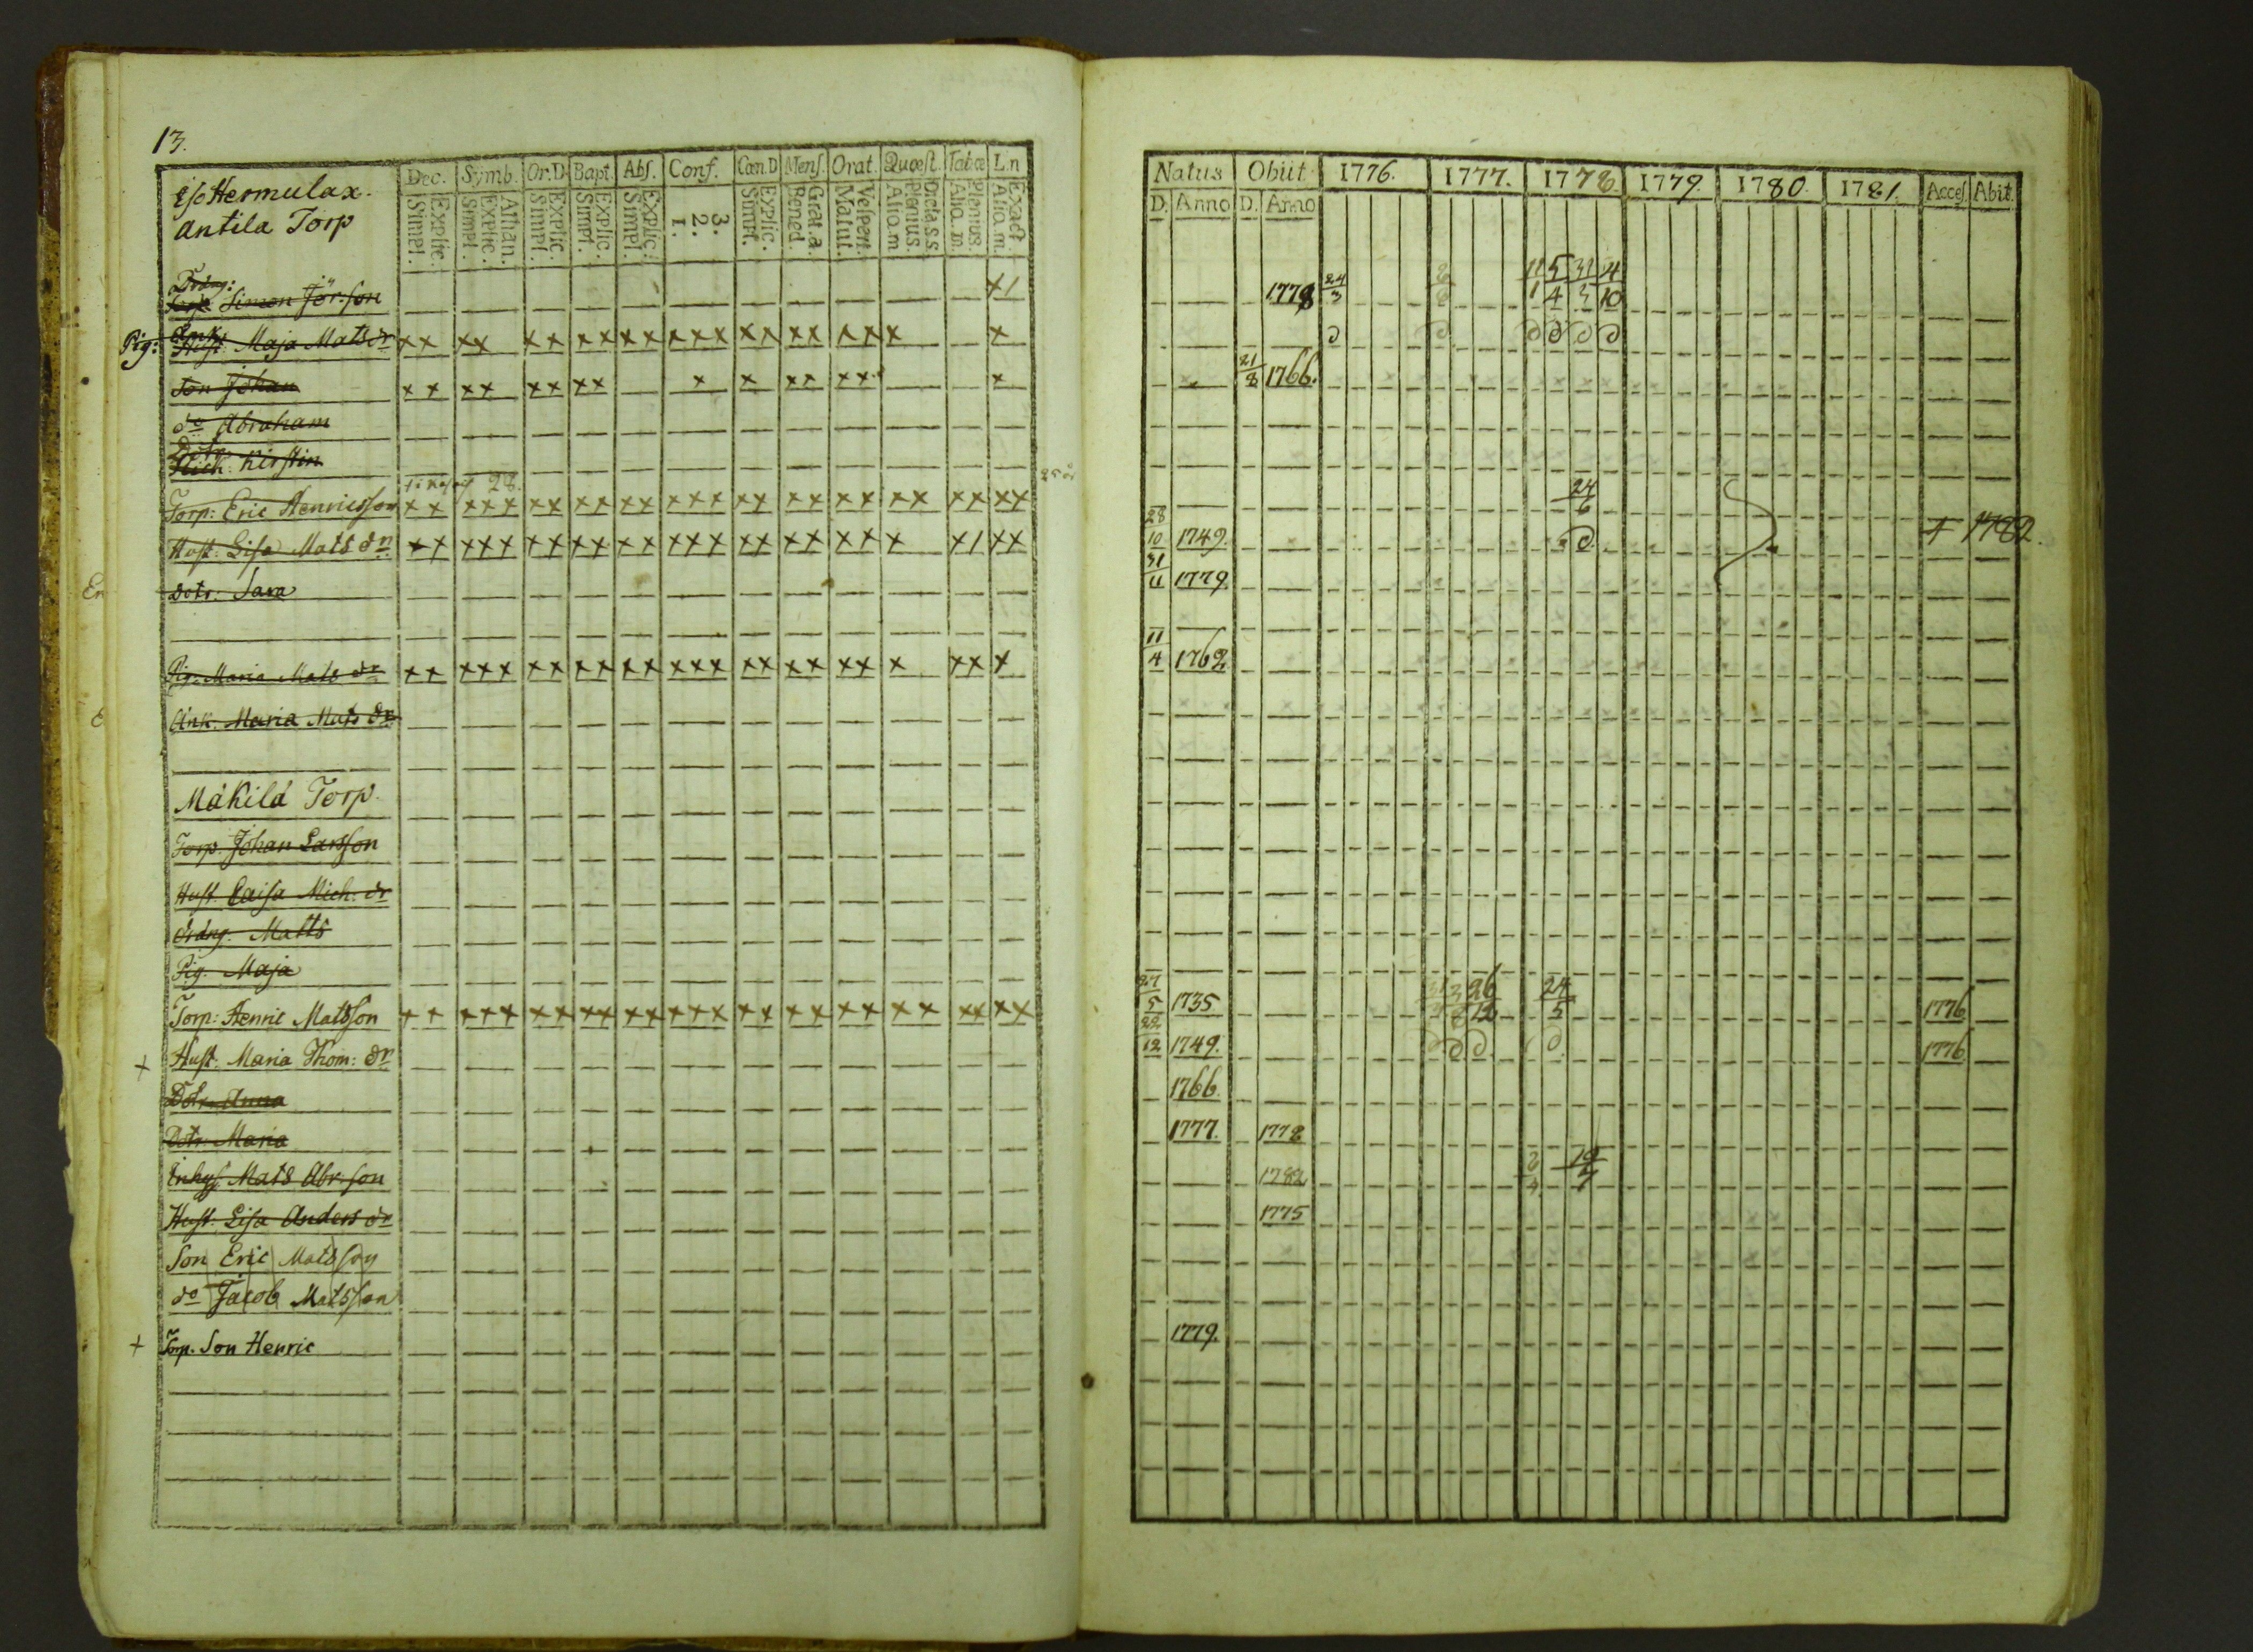 13.
Iso Hermulax.
Antila Torp
Dec. Symb. Or.D. Bapt. Abs. Conf. Cœn.D Mens. Orat. Quæst. Tab.œ L.n
Explic. Simpl. Athan. Explic. Simpl. Explic. Simpl. Explic. Simpl. Explic. Simpl. 3. 2. 1. Explic. Simpl. Grat.a. Bened. Vespert. Matut. Dicta s.s. Plenius. Aliq.m. Plenius. Aliq.m. Exact. Aliq.m.
Dräng:
Simon Jör:son x1
Pig: Enk: Hust: Maja Matsdr xx xx xx xx xx xxx xx xx xx x x
Son Johan xx xx xx xx x x xx xx x
do Abraham
Dotr: Kirstin
28.
Torp: Eric Henricsson xx xxx xx xx xx xxx xx xx xx xx xx xx
Hust: Lisa Mats dr xx xxx xx xx xx xxx xx xx xx x x1 xx
Dotr: Sara
Pig. Maria Mats dr xx xxx xx xx xx xxx xx xx xx x xx x
Änk: Maria Mats dr
Mäkilä Torp.
Torp. Johan Larsson
Hust. Caisa Mich: dr
dräng. Matts
Pig. Maja
Torp: Henric Matsson xx xxx xx xx xx xxx xx xx xx xx xx xx
+ Hust. Maria Thom: dr
Dotr Anna
Dotr: Maria
Inhys. Mats Abr:son
Hust. Lisa Anders dr
Son Eric Matsson
do Jacob Matsson
+ Torp. Son Henric
Natus Obiit 1776. 1777. 1778. 1779. 1780. 1781. Acces. Abit.
D. Anno D. Anno
1778 24/3 11/1 5/4 31/3 4/10
21/8 1766.
24/6
28/10 1749. + 1782.
31/11 1779.
11/4 1762
27/5 1735 26/12 24/5 1776
22/12 1749. 1776
1766.
1777. 1778
1782 19/7
1775
1779.